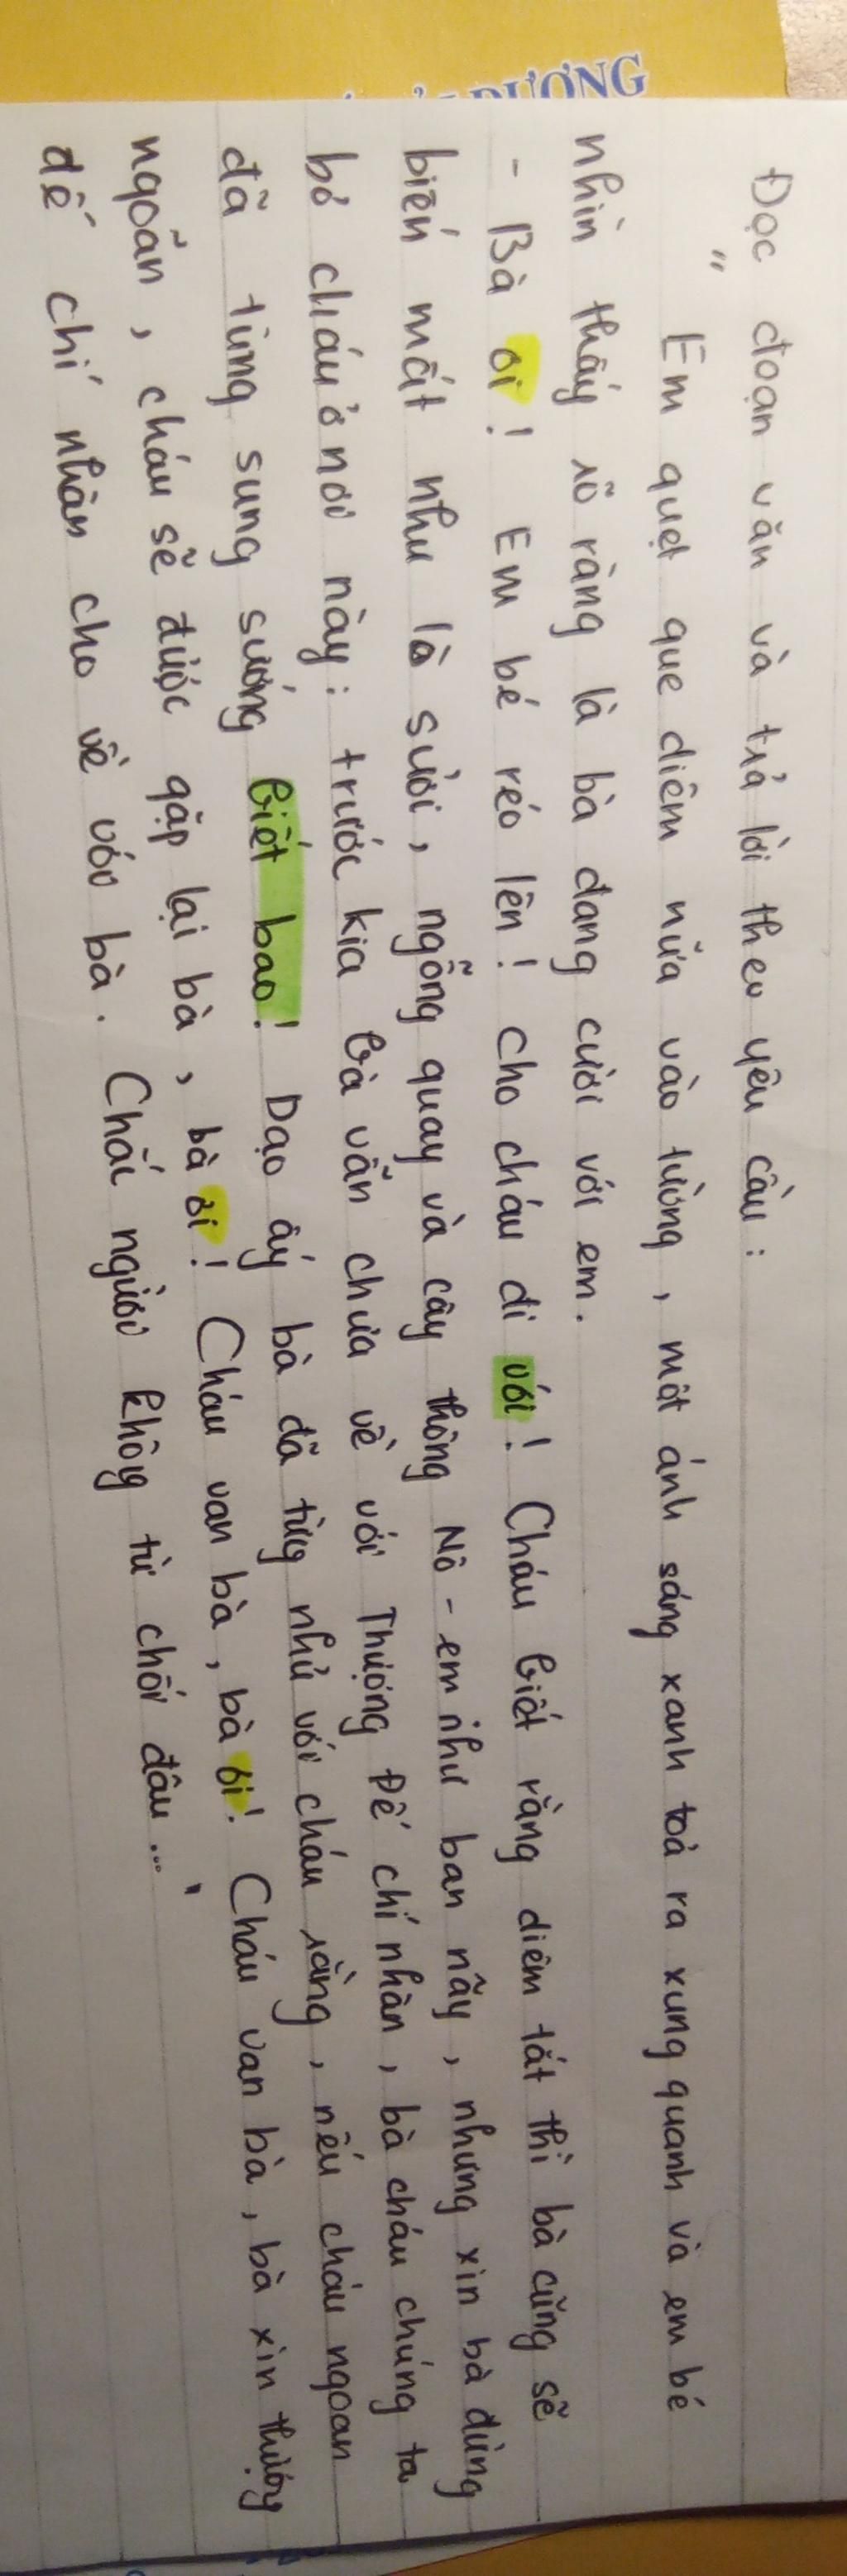 DƯƠNG
Đọc đoạn văn và trả lời theo yêu cầu:
" Em quẹt que diêm nữa vào tường, một ánh sáng xanh toả ra xung quanh và em bé
nhìn thấy rõ ràng là bà đang cười với em.
- Bà ơi! Em bé réo lên! cho cháu đi với! Cháu biết rằng diêm tắt thì bà cũng sẽ
biến mất như là sưởi, ngỗng quay và cây thông Nô-em như ban nãy, nhưng xin bà đừng
bỏ cháu ở nơi này: trước kia bà vẫn chưa về với Thượng Đế chí nhân, bà cháu chúng ta
đã từng sung sướng biết bao! Dạo ấy bà đã từng nhủ với cháu rằng, nếu cháu ngoan
ngoãn, cháu sẽ được gặp lại bà, bà ơi! Cháu van bà, bà ơi! Cháu van bà, bà xin thượng
đế chí nhân cho về với bà. Chắc người không từ chối đâu..."